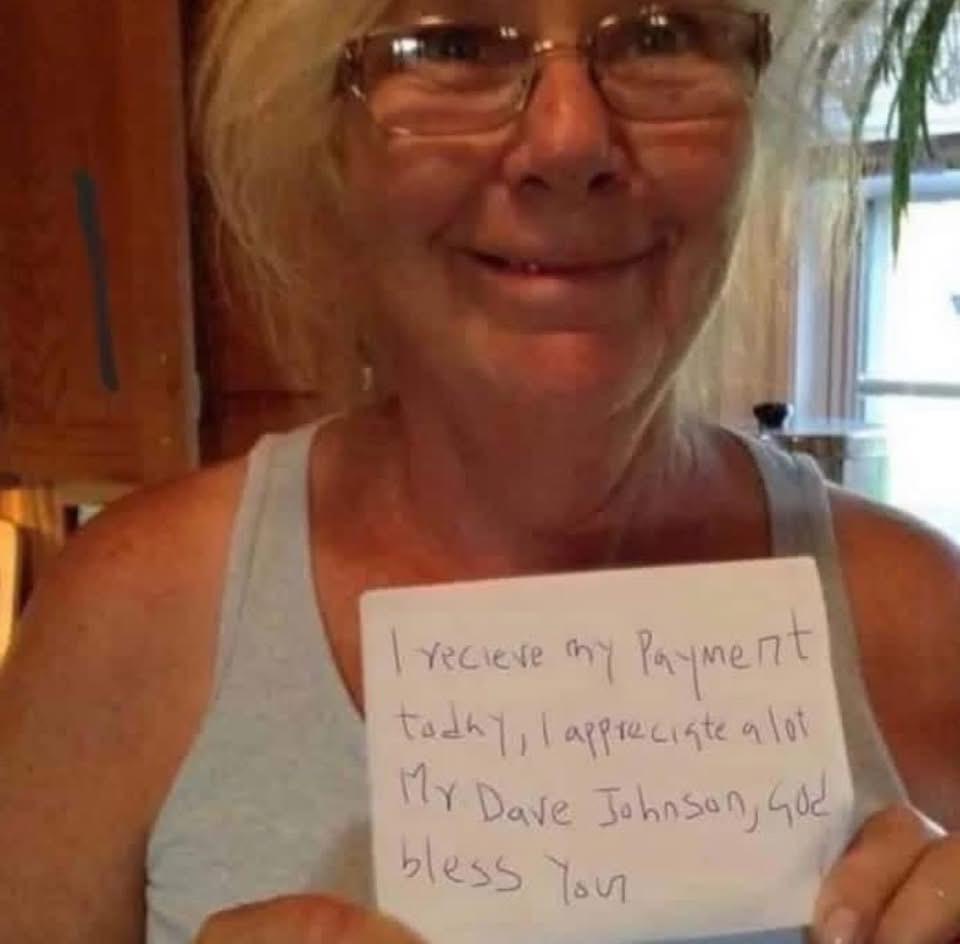 I recieve my Payment
today, I appreciate a lot
Mr Dave Johnson, God
bless You